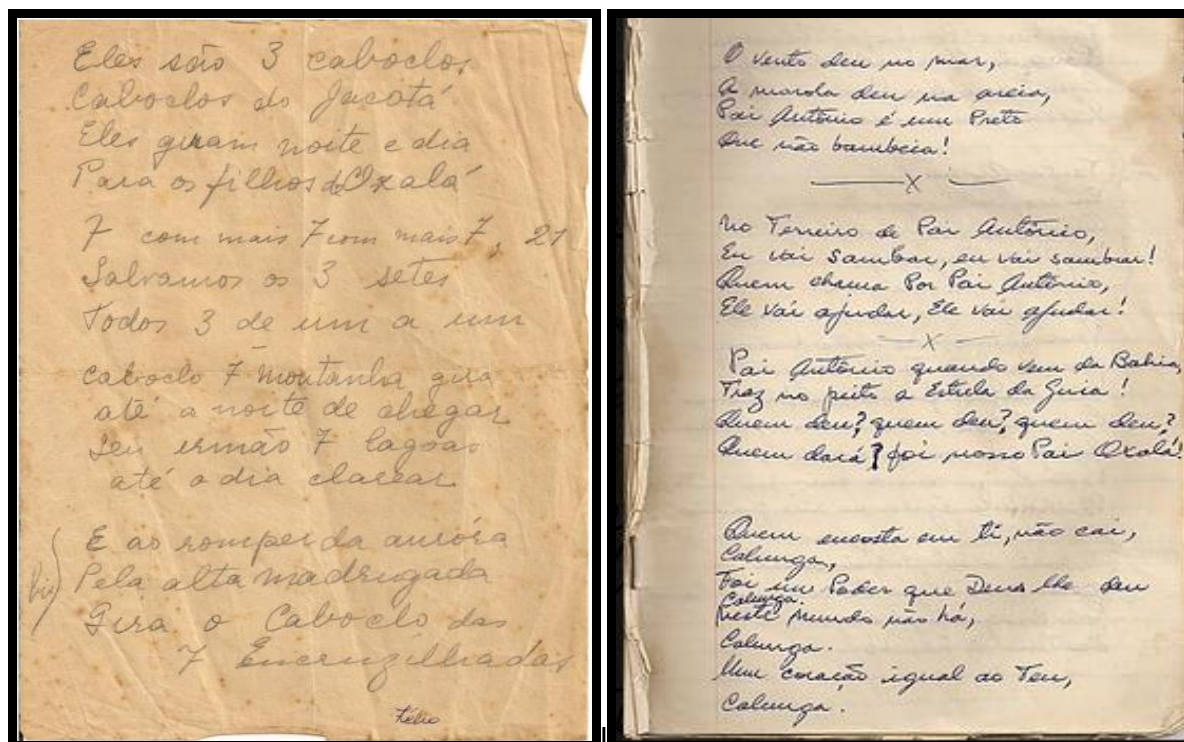 Eles são 3 caboclos
Caboclos do Jacotá
Eles giram noite e dia
Para os filhos d Oxalá
7 com mais 7 com mais 7, 21
Salvamos os 3 setes
Todos 3 de um a um
Caboclo 7 Montanha gira
até a noite de chegar
seu irmão 7 lagoas
até o dia clarear
bis) E ao romper da auróra
Pela alta madrugada
Gira o Caboclo das
7 Encruzilhadas
Hélio
O vento deu no mar,
A marola deu na areia,
Pai Antônio é um Preto
Que não bambeia!
x
No Terreiro de Pai Antônio,
Eu vai sambar, eu vai sambar!
Quem chama Por Pai Antônio,
Ele vai ajudar, Ele vai ajudar!
x
Pai Antônio quando vem da Bahia,
Traz no peito a Estrela da Guia!
Quem deu? quem deu? quem deu?
Quem dará? foi nosso Pai Oxalá!
Quem encosta em ti, não cai,
Calunga,
Foi um Poder que Deus lhe deu
Calunga.
Neste mundo não há,
Calunga.
Um coração igual ao Teu,
Calunga.